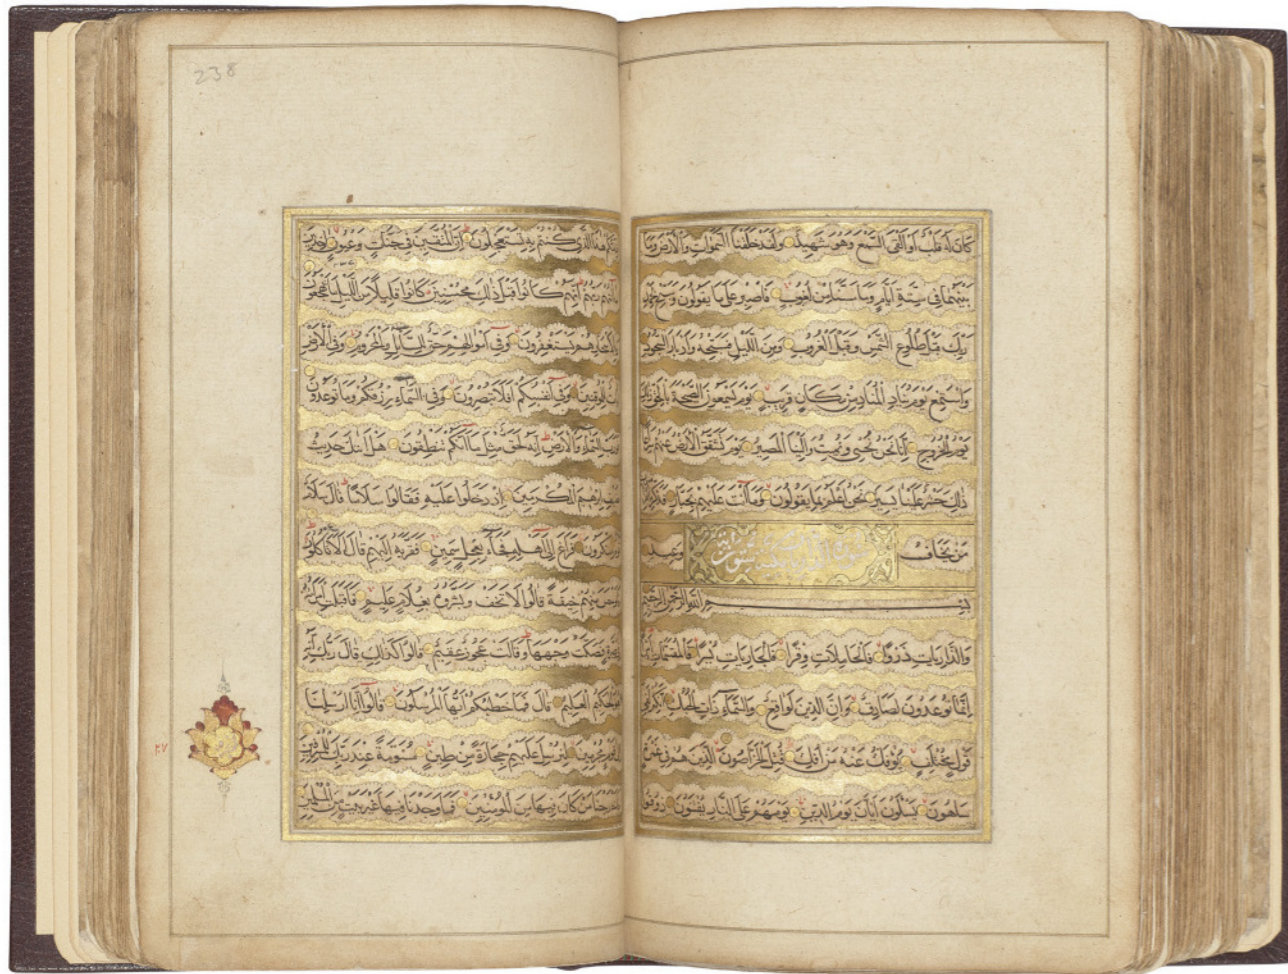 كَانَ لَهُ قَلْبٌ أَوْ أَلْقَى السَّمْعَ وَهُوَ شَهِيدٌ وَلَقَدْ خَلَقْنَا السَّمٰوَاتِ وَالْأَرْضَ وَمَا
بَيْنَهُمَا فِي سِتَّةِ أَيَّامٍ وَمَا مَسَّنَا مِنْ لُغُوبٍ فَاصْبِرْ عَلَى مَا يَقُولُونَ وَسَبِّحْ بِحَمْدِ
رَبِّكَ قَبْلَ طُلُوعِ الشَّمْسِ وَقَبْلَ الْغُرُوبِ وَمِنَ اللَّيْلِ فَسَبِّحْهُ وَأَدْبَارَ السُّجُودِ
وَاسْتَمِعْ يَوْمَ يُنَادِ الْمُنَادِ مِنْ مَكَانٍ قَرِيبٍ يَوْمَ يَسْمَعُونَ الصَّيْحَةَ بِالْحَقِّ ذٰلِكَ
يَوْمُ الْخُرُوجِ إِنَّا نَحْنُ نُحْيِي وَنُمِيتُ وَإِلَيْنَا الْمَصِيرُ يَوْمَ تَشَقَّقُ الْأَرْضُ عَنْهُمْ سِرَاعًا
ذٰلِكَ حَشْرٌ عَلَيْنَا يَسِيرٌ نَحْنُ أَعْلَمُ بِمَا يَقُولُونَ وَمَا أَنْتَ عَلَيْهِمْ بِجَبَّارٍ فَذَكِّرْ
مَنْ يَخَافُ وَعِيدِ
بِسْمِ اللّٰهِ الرَّحْمٰنِ الرَّحِيمِ
وَالذَّارِيَاتِ ذَرْوًا فَالْحَامِلَاتِ وِقْرًا فَالْجَارِيَاتِ يُسْرًا فَالْمُقَسِّمَاتِ أَمْرًا
إِنَّمَا تُوعَدُونَ لَصَادِقٌ وَإِنَّ الدِّينَ لَوَاقِعٌ وَالسَّمَاءِ ذَاتِ الْحُبُكِ إِنَّكُمْ لَفِي
قَوْلٍ مُخْتَلِفٍ يُؤْفَكُ عَنْهُ مَنْ أُفِكَ قُتِلَ الْخَرَّاصُونَ الَّذِينَ هُمْ فِي غَمْرَةٍ
سَاهُونَ يَسْئَلُونَ أَيَّانَ يَوْمُ الدِّينِ يَوْمَ هُمْ عَلَى النَّارِ يُفْتَنُونَ ذُوقُوا
238
فِتْنَتَكُمْ هٰذَا الَّذِي كُنْتُمْ بِهِ تَسْتَعْجِلُونَ إِنَّ الْمُتَّقِينَ فِي جَنَّاتٍ وَعُيُونٍ آخِذِينَ
مَا آتَاهُمْ رَبُّهُمْ إِنَّهُمْ كَانُوا قَبْلَ ذٰلِكَ مُحْسِنِينَ كَانُوا قَلِيلًا مِنَ اللَّيْلِ مَا يَهْجَعُونَ
وَبِالْأَسْحَارِ هُمْ يَسْتَغْفِرُونَ وَفِي أَمْوَالِهِمْ حَقٌّ لِلسَّائِلِ وَالْمَحْرُومِ وَفِي الْأَرْضِ
آيَاتٌ لِلْمُوقِنِينَ وَفِي أَنْفُسِكُمْ أَفَلَا تُبْصِرُونَ وَفِي السَّمَاءِ رِزْقُكُمْ وَمَا تُوعَدُونَ
فَوَرَبِّ السَّمَاءِ وَالْأَرْضِ إِنَّهُ لَحَقٌّ مِثْلَ مَا أَنَّكُمْ تَنْطِقُونَ هَلْ أَتَاكَ حَدِيثُ
ضَيْفِ إِبْرٰهِيمَ الْمُكْرَمِينَ إِذْ دَخَلُوا عَلَيْهِ فَقَالُوا سَلَامًا قَالَ سَلَامٌ
قَوْمٌ مُنْكَرُونَ فَرَاغَ إِلَى أَهْلِهِ فَجَاءَ بِعِجْلٍ سَمِينٍ فَقَرَّبَهُ إِلَيْهِمْ قَالَ أَلَا تَأْكُلُونَ
فَأَوْجَسَ مِنْهُمْ خِيفَةً قَالُوا لَا تَخَفْ وَبَشَّرُوهُ بِغُلَامٍ عَلِيمٍ فَأَقْبَلَتِ امْرَأَتُهُ
فِي صَرَّةٍ فَصَكَّتْ وَجْهَهَا وَقَالَتْ عَجُوزٌ عَقِيمٌ قَالُوا كَذٰلِكِ قَالَ رَبُّكِ إِنَّهُ
هُوَ الْحَكِيمُ الْعَلِيمُ قَالَ فَمَا خَطْبُكُمْ أَيُّهَا الْمُرْسَلُونَ قَالُوا إِنَّا أُرْسِلْنَا
إِلَى قَوْمٍ مُجْرِمِينَ لِنُرْسِلَ عَلَيْهِمْ حِجَارَةً مِنْ طِينٍ مُسَوَّمَةً عِنْدَ رَبِّكَ لِلْمُسْرِفِينَ
فَأَخْرَجْنَا مَنْ كَانَ فِيهَا مِنَ الْمُؤْمِنِينَ فَمَا وَجَدْنَا فِيهَا غَيْرَ بَيْتٍ مِنَ الْمُسْلِمِينَ
٢٧